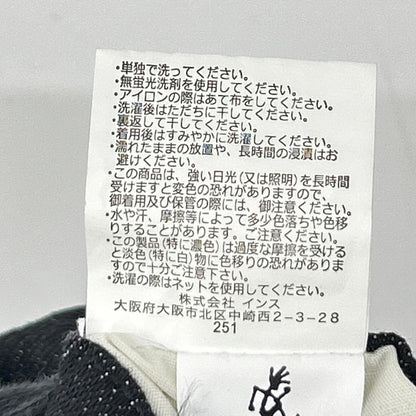 ・単独で洗ってください。
・無蛍光洗剤を使用してください。
・アイロンの際はあて布をしてください。
・洗濯後はただちに干してください。
・裏返して干してください。
・着用後はすみやかに洗濯してください。
・濡れたままの放置や、長時間の浸漬はお
避けください。
・この商品は、強い日光(又は照明)を長時間
受けますと変色の恐れがありますので、
御着用及び保管の際には、御注意ください。
・水や汗、摩擦等によって多少色落ちや色移
りすることがあります。ご注意ください。
・この製品(特に濃色)は過度な摩擦を受ける
と淡色(特に白)物に色移りの恐れがありま
すので十分ご注意下さい。
・洗濯の際はネットを使用してください。
株式会社 インス
大阪府大阪市北区中崎西2-3-28
251